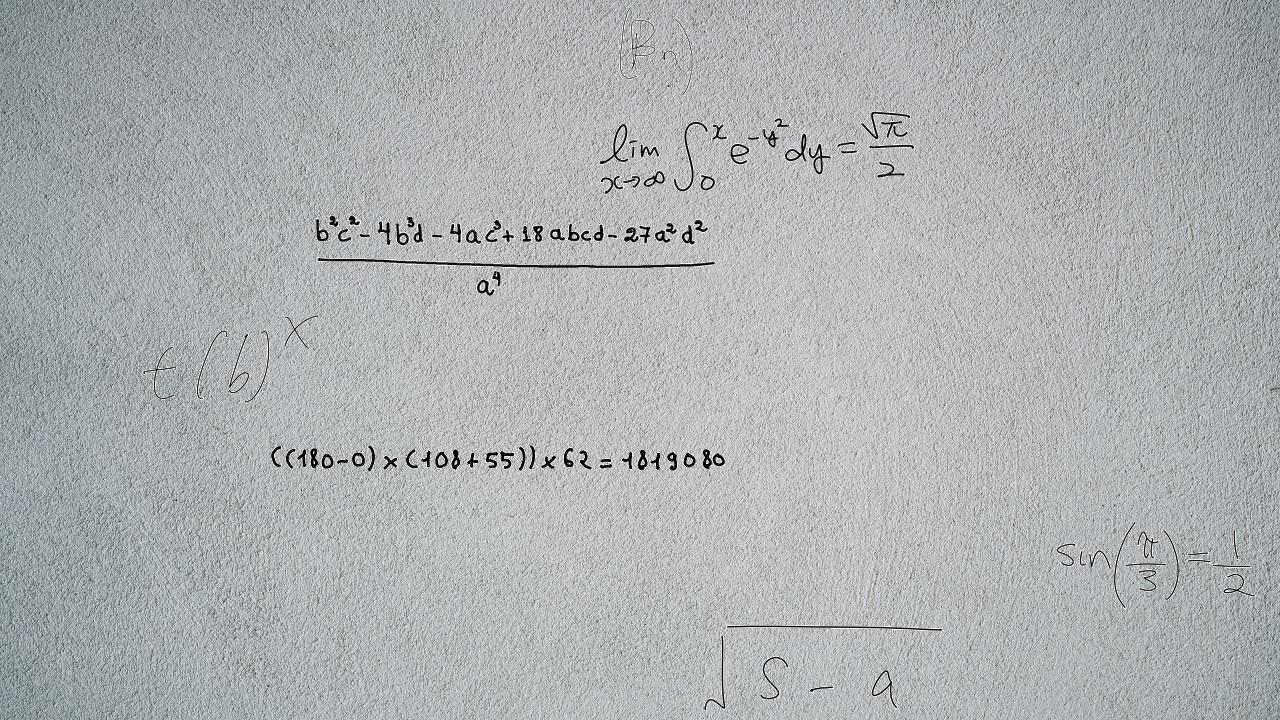 (β_n)
\lim_{x \to \infty} \int_0^x e^{-y^2} dy = \frac{\sqrt{\pi}}{2}
\frac{b^2c^2 - 4b^3d - 4ac^3 + 18abcd - 27a^2d^2}{a^4}
t(b)^x
((180-0)×(108+55))×62=1819080
\sin\left(\frac{\pi}{3}\right) = \frac{1}{2}
\sqrt{S - a}